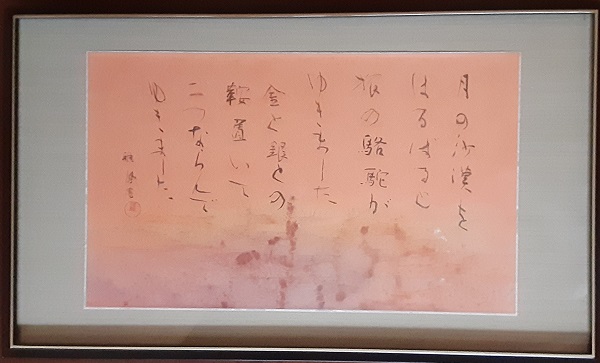 月の沙漠を
はるばると
旅の駱駝が
ゆきました
金と銀との
鞍置いて
二つならんで
ゆきました